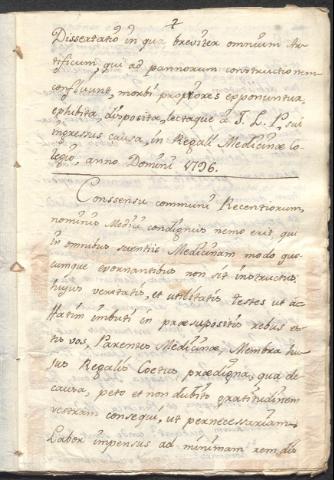 2
Dissertatio in qua breviter omnium Ar-
tificum, qui ad pannorum constructionem
confluunt, morbi propiores exponuntur,
exhibita, disposita, lectaque á J. L. P. sui
ingressus causa, in Regali Medicinæ Co-
legio, anno Domini 1796.
Conssensu communi Recentiorum,
nominis Medici condignus nemo erit, qui
in omnibus scientiis Medicinam modo quo-
cumque exornantibus non sit instructus
hujus veritatis, et utilitatis testes ut ac
statim imbuti in præsupositis rebus es-
tis vos, Parentes Medicinæ, Membra hu-
jus Regalis Coetus prædigna, qua de
causa, peto et non dubito gratitudinem
vestram consequi, ut pernecessarium
Labor impensus ad minimam rem dis